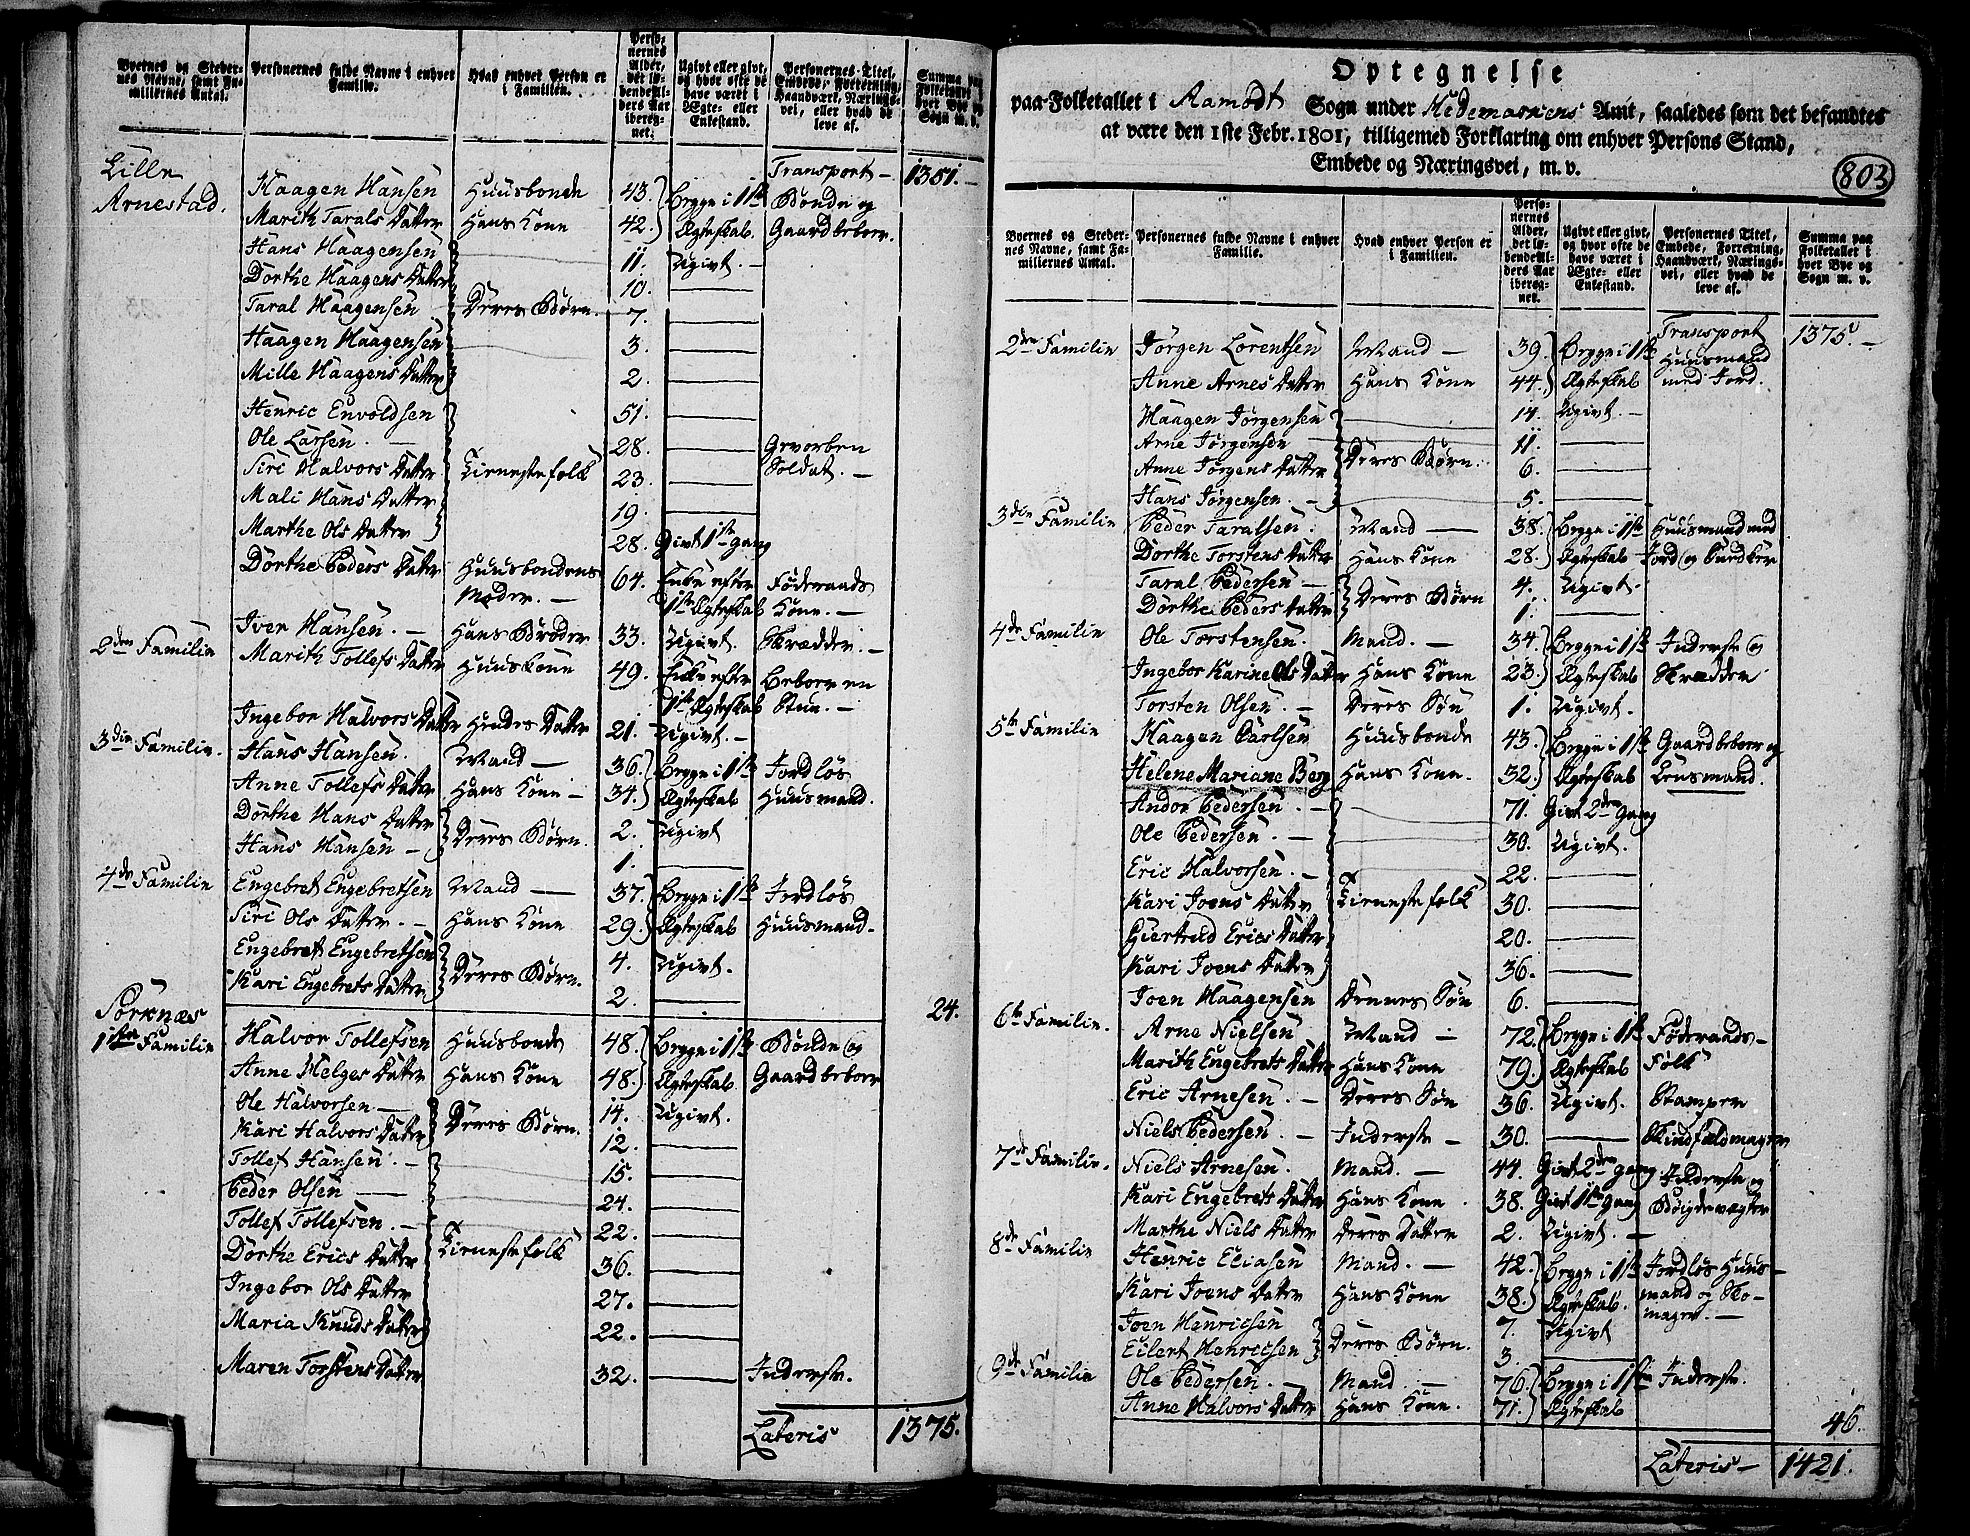 Byernes og Stedernes Navne, samt Familiernes Antal. | Personernes fulde Navne i enhver Familie. | Hvad enhver Person er i Familien. | Personernes Alder, det løbende Alders Aar iberegnet. | Ugivt eller givt, og hvor ofte de have været i Ægte- eller Enkestand. | Personernes Titel, Embede, Forretning, Haandværk, Nærings-vei, eller hvad de leve af. | Summa paa Folketallet i hver Bye og Sogn m. v.
Transport — 1351. —
Lille Arnestad. Haagen Hansen Huusbonde 43. Begge i 1ste Bonde og
Marith Tarals Datter Hans Kone 42. Ægteskab. Gaardbeboer.
Hans Haagensen 11. Ugivt. —
Dorthe Haagens Datter 10. —
Taral Haagensen Deres Børn. 7. —
Haagen Haagensen 3. —
Mille Haagens Datter 2. —
Henric Envoldsen 51. —
Ole Larsen. — 28. — Gevorben Soldat. —
Siri Halvors Datter Tienestefolk 23. —
Mali Hans Datter 19. —
Marthe Ols Datter 28. Givt 1ste Gang
Dorthe Peders Datter Huusbondens Moder. — 64. Enke efter 1ste Ægteskab Føderaads Kone. —
Iver Hansen. — Hans Broder 33. Ugivt. Skrædder. —
2den Familie Marith Tollefs Datter Huuskone 49. Enke efter 1ste Ægteskab Beboer en Stue. —
Ingebor Halvors Datter Hendes Datter 21. Ugivt. —
3die Familie. Hans Hansen. Mand — 36. Begge i 1ste Jordløs
Anne Tollefs Datter Hans Kone — 34. Ægteskab Huusmand.
Dorthe Hans Datter Deres Børn. 2. Ugivt
Hans Hansen — 1. —
4de Familie Engebret Engebretsen Mand — 37. Begge i 1ste Jordløs
Siri Ols Datter. — Hans Kone 29. Ægteskab Huusmand.
Engebret Engebretsen Deres Børn. 4. Ugivt.
Kari Engebrets Datter 2. —
24.
Sörknæs
1ste Familie Halvor Tollefsen Huusbonde 48. Begge i 1ste Bonde og
Anne Helges Datter Hans Kone 48. Ægteskab. Gaardbeboer
Ole Halvorsen — Deres Børn. 14. Ugivt.
Kari Halvors Datter 12. —
Tollef Hansen. — 15. —
Peder Olsen — 24. —
Tollef Tollefsen. — Tienestefolk 22. —
Dorthe Erics Datter 36. —
Ingebor Ols Datter 27. —
Maria Knuds Datter 22. —
Maren Torstens Datter 32. — Inderste.
Lateris 1375.
Optegnelse
paa Folketallet i Aamodt Sogn under Hedemarkens Amt, saaledes som det befandtes
at være den 1ste Febr. 1801, tilligemed Forklaring om enhver Persons Stand,
Embede og Næringsvei, m. v.
803
Byernes og Stedernes Navne, samt Familiernes Antal. | Personernes fulde Navne i enhver Familie. | Hvad enhver Person er i Familien. | Personernes Alder, det løbende Alders Aar iberegnet. | Ugivt eller givt, og hvor ofte de have været i Ægte- eller Enkestand. | Personernes Titel, Embede, Forretning, Haandværk, Nærings-vei, eller hvad de leve af. | Summa paa Folketallet i hver Bye og Sogn m. v.
Transport 1375. —
2den Familie Jørgen Lorentsen Mand — 39. Begge i 1ste Huusmand
Anne Arnes Datter Hans Kone 44. Ægteskab med Jord.
Haagen Jørgensen 14. Ugivt. —
Arne Jørgensen — 11. —
Anne Jørgens Datter Deres Børn. 6. —
Hans Jørgensen. — 5. —
3die Familie Peder Taralsen. Mand — 38. Begge i 1ste Huusmand med
Dorthe Torstens Datter Hans Kone 28. Ægteskab Jord og
Taral Pedersen — Deres Børn 4. Ugivt.
Dorthe Peders Datter 1. —
4de Familie Ole Torstensen. Mand. — 34. Begge i 1ste Inderste og
Ingebor Karine Ols Datter Hans Kone 23. Ægteskab Skrædder
Torsten Olsen. — Deres Søn 1. Ugivt.
5te Familie Haagen Carlsen Huusbonde 43. Begge i 1ste Gaardbeboer og
Helene Mariane Berg Hans Kone. 32. Ægteskab Lensmand.
Andor Pedersen. — 71. Givt 2den Gang
Ole Pedersen. — 30. Ugivt.
Eric Halvorsen. — 22. —
Kari Joens Datter Tienestefolk 30. —
Giertrud Erics Datter 20. —
Kari Joens Datter 36. —
Joen Haagensen Dennes Søn 6. —
6te Familie. Arne Nielsen Mand — 72. Begge i 1ste Føderaads-
Marith Engebrets Datter Hans Kone 79. Ægteskab Folk
Eric Arnesen. — Deres Søn 36. Ugivt. Stamper
Niels Pedersen. — Inderste — 30. — Skindfældmager
7de Familie. Niels Arnesen. Mand. — 44. Givt 2den Gang Inderste og
Kari Engebrets Datter Hans Kone. 38. Givt 1ste Gang Bøigdevægter
Marthe Niels Datter Deres Datter 2. Ugivt. —
8de Familie Henric Eliasen Mand. — 42. Begge i 1ste Jordløs Huus-
Kari Joens Datter Hans Kone 38. Ægteskab. mand og Sko-
Joen Henricsen Deres Børn. 7. Ugivt mager. —
Eilert Henricsen 3. —
9de Familie Ole Pedersen. — Mand — 76. Begge i 1ste Inderste.
Anne Halvors Datter Hans Kone. 71. Ægteskab
46.
Lateris — 1421.